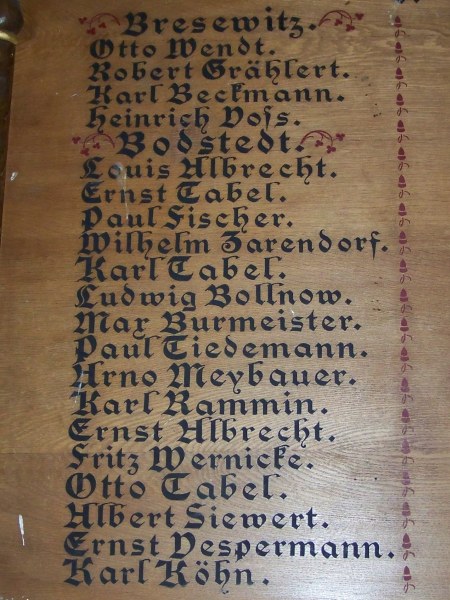 Bresewitz.
Otto Wendt.
Robert Grählert.
Karl Beckmann.
Heinrich Voss.
Bodstedt.
Louis Albrecht.
Ernst Tabel.
Paul Fischer.
Wilhelm Zarendorf.
Karl Tabel.
Ludwig Bollnow.
Max Burmeister.
Paul Tiedemann.
Arno Meybauer.
Karl Rammin.
Ernst Albrecht.
Fritz Wernicke.
Otto Tabel.
Albert Siewert.
Ernst Vespermann.
Karl Köhn.